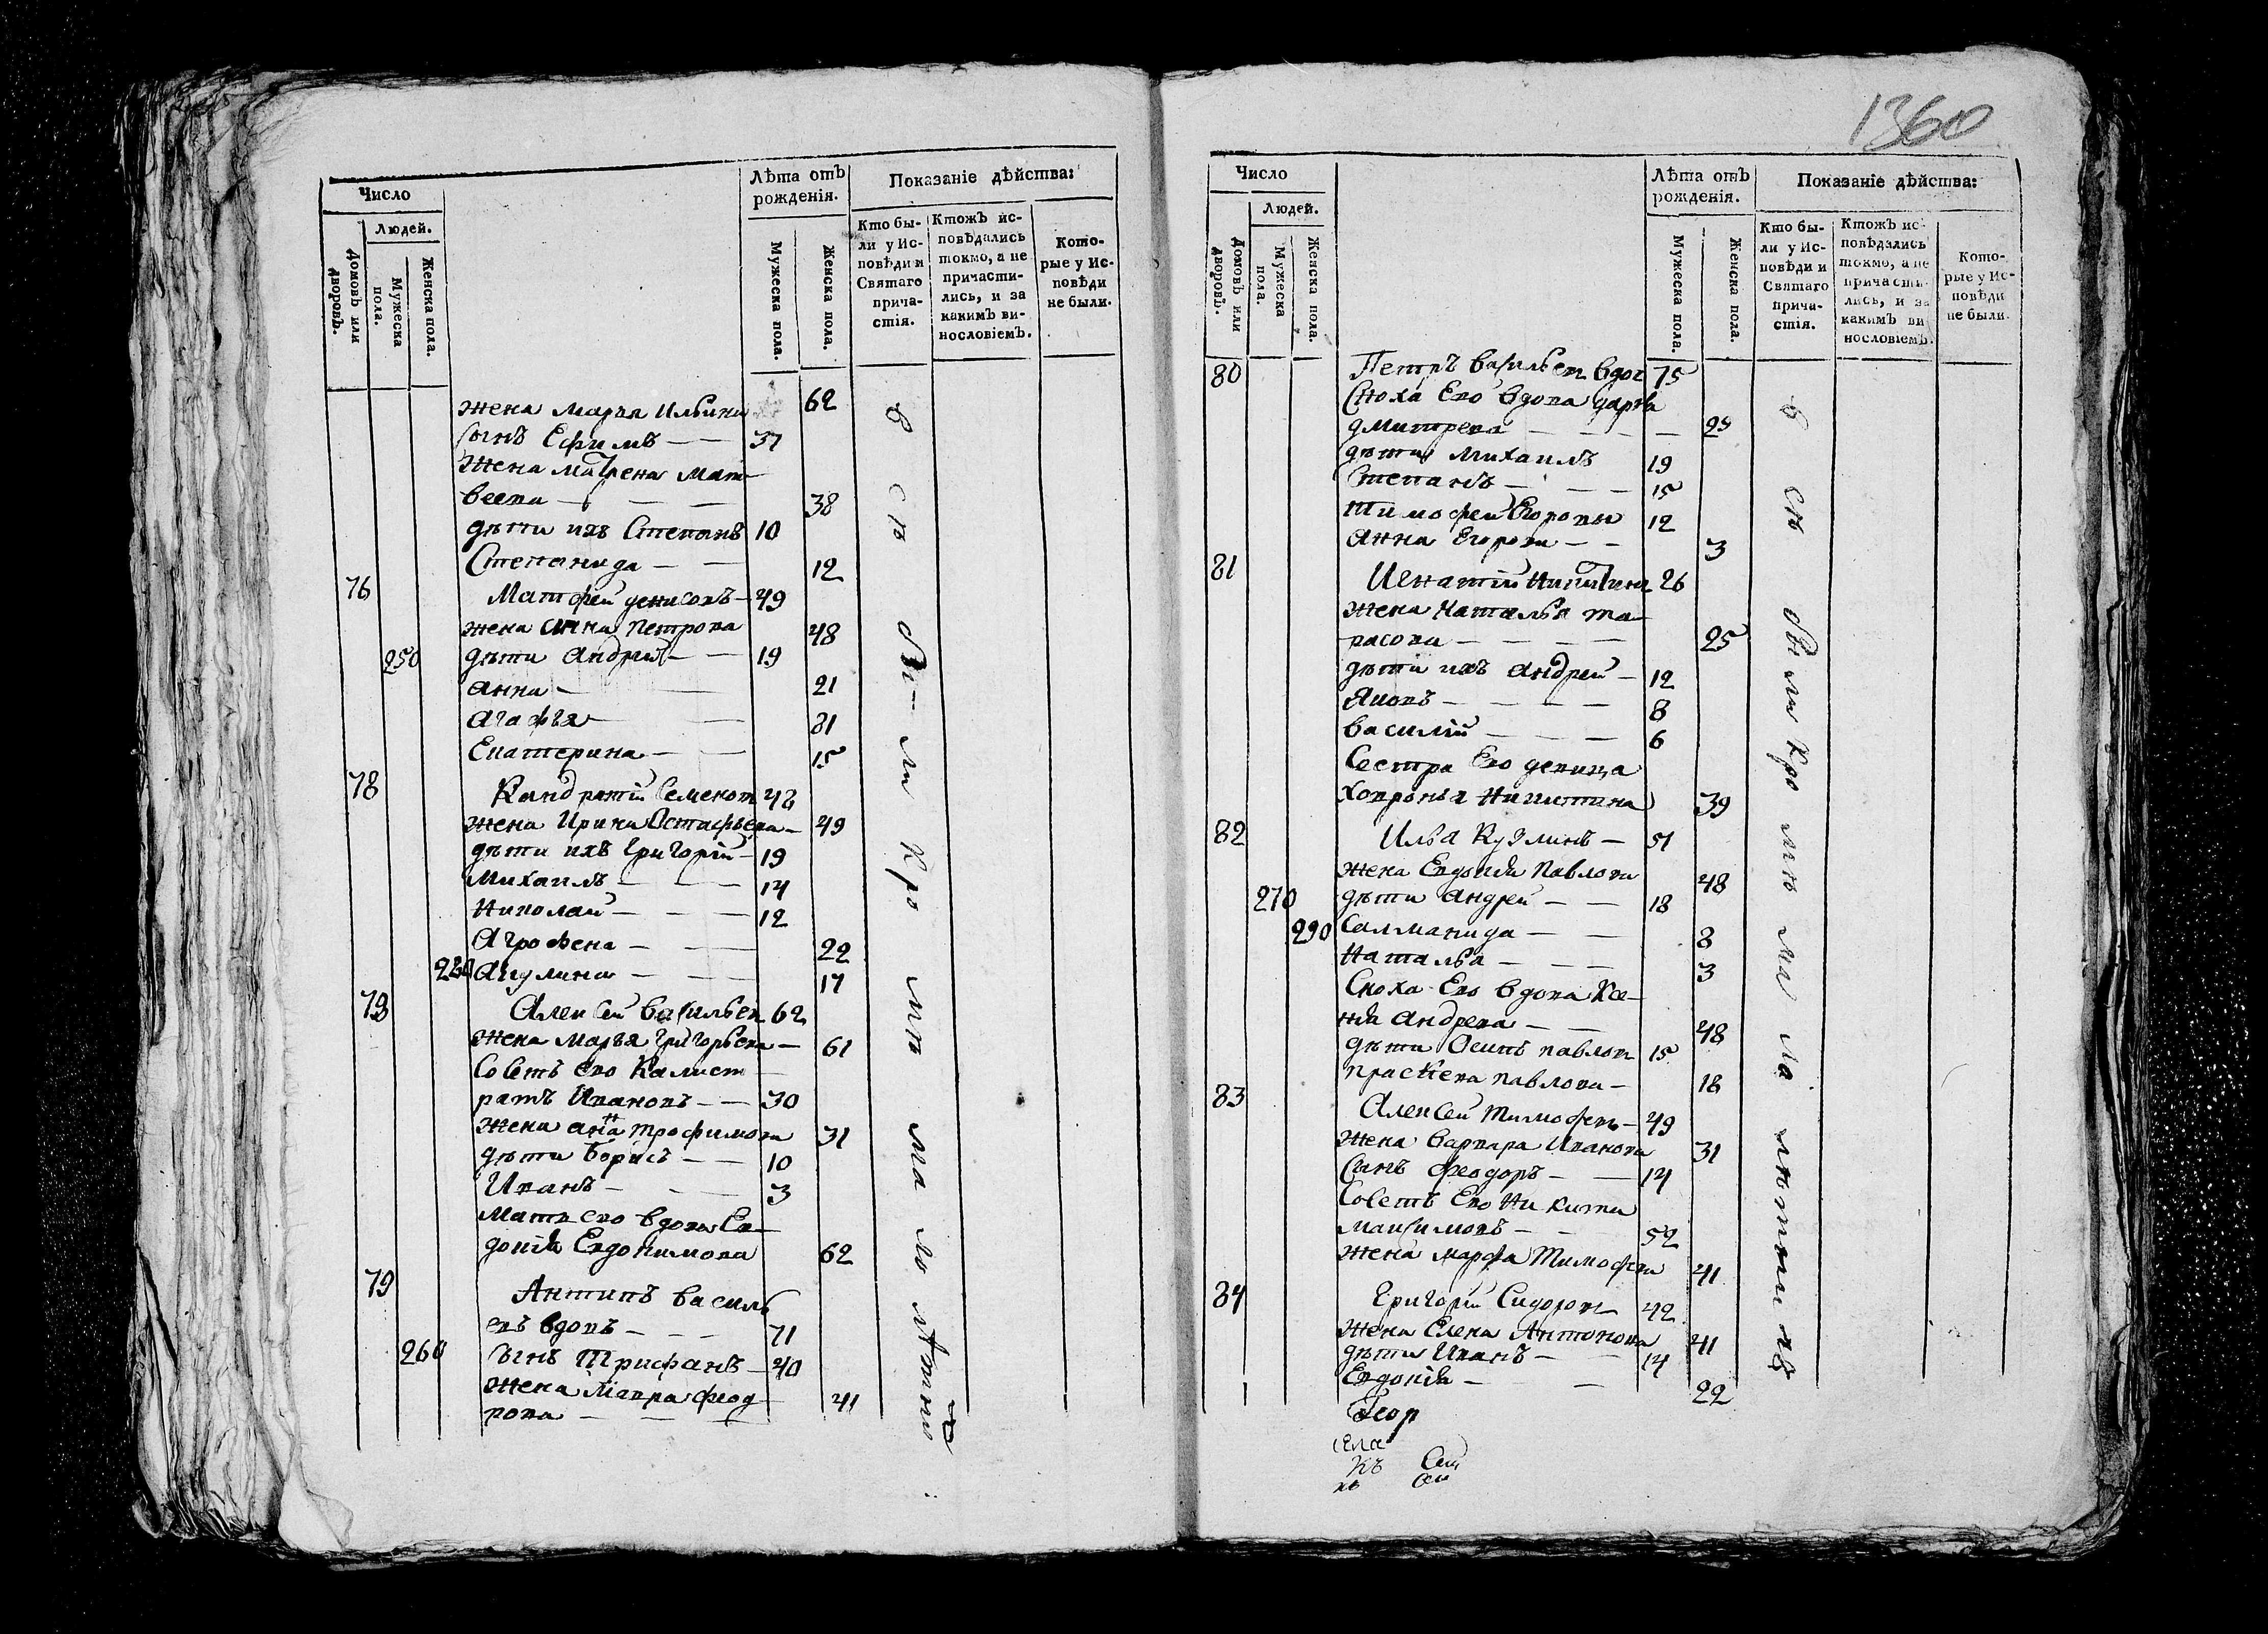 1360
Число
Людей.
Домовъ или дворовъ.
Мужеска пола.
Женска пола.
Лѣта отъ рожденія.
Мужеска пола.
Женска пола.
Показаніе дѣйства:
Кто бы-
ли у Ис-
повѣди и
Святаго
прича-
стія.
Ктожъ ис-
повѣдались
токмо, а не
причасти-
лись, и за
какимъ ви-
нословіемъ.
Кото-
рые у Ис-
повѣди
не были.
жена Марья Ильина 62
сынъ Ефимъ 37
жена Матрена Мат-
веева 38
дѣти ихъ Степанъ 10
Степанида 12
76 Матфей денисовъ 49
жена анна петрова 48
250 дѣти андрей 19
анна 21
агафья 81
Екатерина 15
78 Кандратій Семенов 48
жена Ирина Остафьева 49
дѣти ихъ григорій 19
Михаилъ 14
николай 12
Аграфена 22
280 акулина 17
79 Алексей васильев 62
жена Марья григорьева 61
Совет его Калист-
ратъ Ивановъ 30
жена анна трофимова 31
дѣти борисъ 10
Иванъ 3
мать его вдова Ев-
докія Евдокимова 62
79 Антипъ василь
евъ вдовъ 71
260 сынъ Трифанъ 40
жена Мавра феод
рова 41
всѣ были кромѣ малолѣтныхъ
Число
Людей.
Домовъ или дворовъ.
Мужеска пола.
Женска пола.
Лѣта отъ рожденія.
Мужеска пола.
Женска пола.
Показаніе дѣйства:
Кто бы-
ли у Ис-
повѣди и
Святаго
прича-
стія.
Ктожъ ис-
повѣдались
токмо, а не
причасти-
лись, и за
какимъ ви-
нословіемъ.
Кото-
рые у Ис-
повѣди
не были.
80 Петръ васильев вдов 75
Сноха Его вдова дарья
дмитрева 29
дѣти Михаилъ 19
Степанъ 15
Тимофей Егоровы 12
анна Егорова 3
81 Игнатій Никитин 26
жена наталья та-
расова 25
дѣти ихъ андрей 12
Яковъ 8
василій 6
Сестра Его девица
ховронья никитина 39
82 Илья Кузминъ 51
жена Евдокія павлова 48
270 дѣти андрей 18
290 Салманида 8
наталья 3
Сноха Его вдова Ксе-
нія андрева 48
дѣти Осипъ павлов 15
праскева павлова 18
83 Алексей тимофевъ 49
жена варвара Иванова 31
Сынъ феодоръ 14
Советъ Его Никита
максимовъ 52
жена марфа Тимофева 41
84 Григорій Сидоров 42
жена Елена Антонова 41
дѣти Иванъ 14
Евдокія 22
всѣ были кромѣ малалѣтныхъ